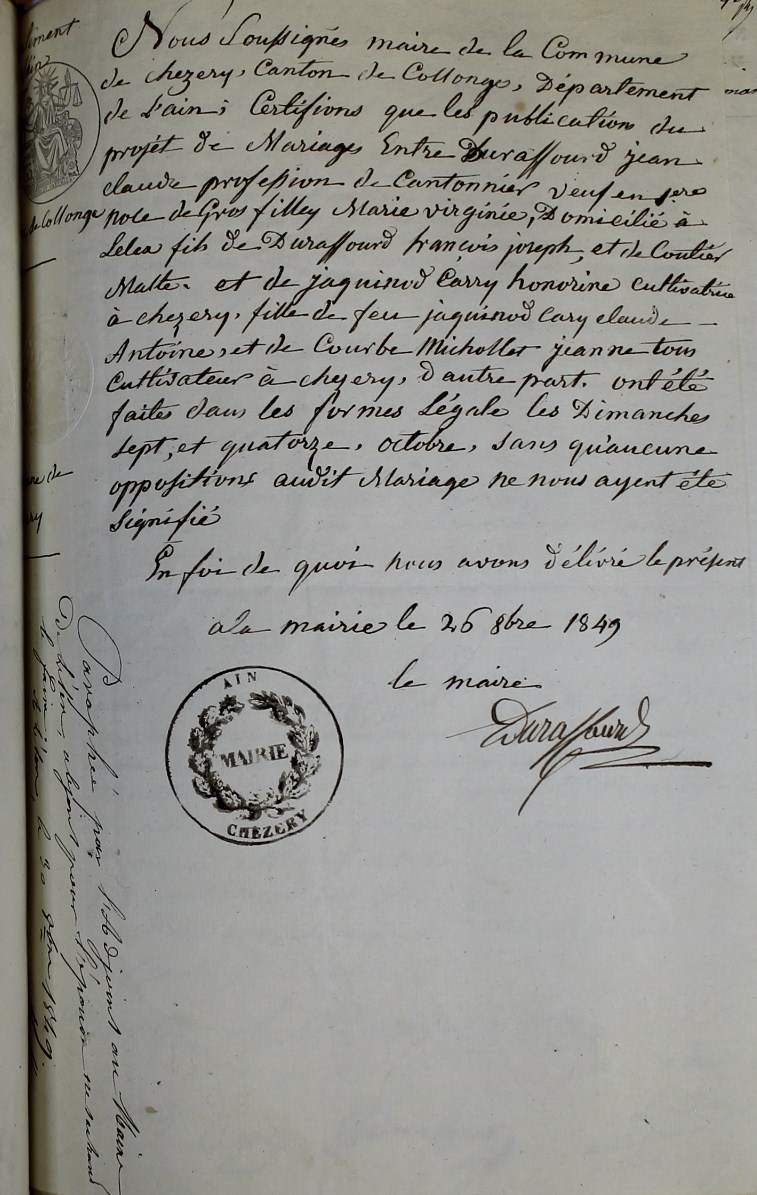 Nous Soussignés maire de la Commune
de chezery, Canton de Collonge, Département
de L'ain; Certifions que les publications du
projét de Mariages Entre Duraffourd jean
claude profession de Cantonnier veuf en 1ere
noce de Gros filley Marie virginée, Domicilié à
Lelex fils de Duraffourd françois joseph, et de Coutier
Matte. et de jaquinod Carry honorine cultivatrice
à chezery, fille de feu jaquinod Cary claude
Antoine, et de Courbe Michollet jeanne tous
Cultivateur à chezery, d'autre part. ont été
faites dans les formes Légale les Dimanches
sept, et quatorze, octobre, sans qu'aucune
oppositions audit Mariage ne nous ayent été
signifié
En foi de quoi nous avons délivré le présent
a La mairie le 26 8bre 1849
le maire
Duraffourd
AIN
MAIRIE
CHÉZERY
de Collonge
Paraphée par l'Adjoint au Maire
le 30 9bre 1849.